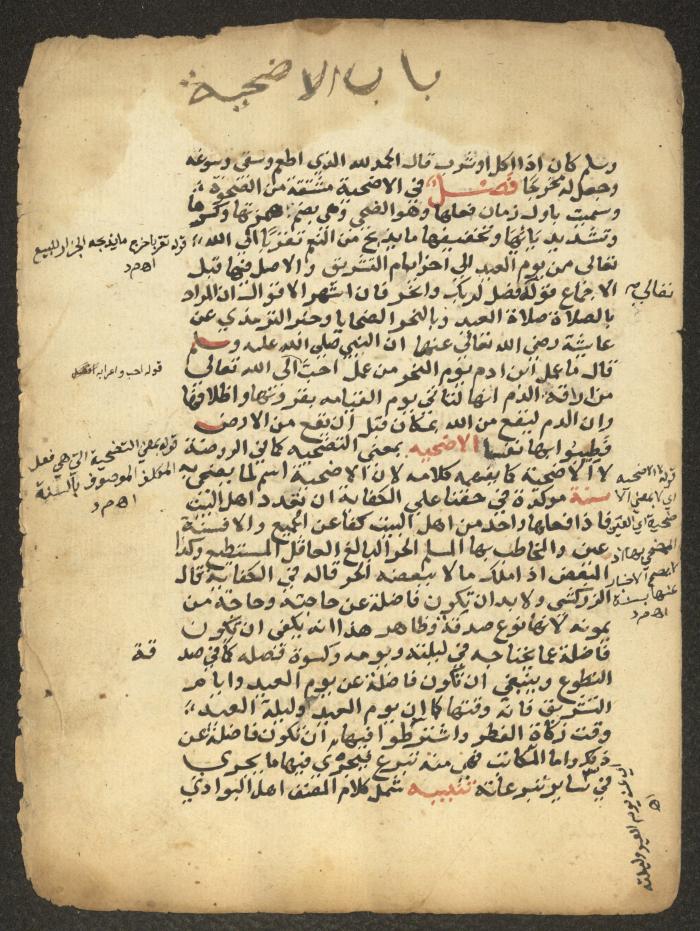 باب الاضحية
وسلم كان اذا اكل او شرب قال الحمد لله الذي اطعم وسقى وسوغه
وجعل له مخرجا فصل في الاضحية مشتقة من الضحوة
وسميت باول زمان فعلها وهو الضحى وهي بضم همزتها وكسرها
وتشديد يائها وتخفيفها ما يذبح من النعم تقربا الى الله
تعالى من يوم العيد الى آخر ايام التشريق والاصل فيها قبل
الاجماع قوله فصل لربك وانحر فان اشهر الاقوال ان المراد
بالصلاة صلاة العيد وبالنحر الضحايا وخبر الترمذي عن
عايشة رضي الله تعالى عنها ان النبي صلى الله عليه وسلم
قال ما عمل ابن ادم يوم النحر من عمل احب الى الله تعالى
من اراقة الدم انها لتاتي يوم القيامه بقرونها واظلافها
وان الدم ليقع من الله بمكان قبل ان يقع من الارض
فطيبوا بها نفسا الاضحيه بمعنى التضحيه كما في الروضة
لا الاضحية كما يفهمه كلامه لان الاضحية اسم لما يضحى به
سنة موكدة في حقنا على الكفاية ان تعدد اهل البيت
فاذا فعلها واحد من اهل البيت كفا عن الجميع والا فسنة
عين والمخاطب بها المسلم الحر البالغ العاقل المستطيع وكذا
المبعض اذا ملك مالا ببعضه الحر قاله في الكفاية قال
الزركشي ولا بد ان تكون فاضلة عن حاجته وحاجة من
يمونه لانها نوع صدقة وظاهر هذا انه يكفي ان تكون
فاضلة عما يحتاجه في ليلته ويومه وكسوة فصله كما في صد
قة
التطوع وينبغي ان تكون فاضلة عن يوم العيد وايام
التشريق فانه وقتها كما ان يوم العيد وليلة العيد
وقت زكاة الفطر واشترطوا فيها ان تكون فاضلة عن
ذلك واما المكاتب فهي منه تبرع فيجري فيها ما يجري
في ساير تبرعاته تنبيه شمل كلام المصنف اهل البوادي
قوله تقربا خرج ما يذبحه الجزار للبيع
اه م د
تعالى
قوله احب واعرابه
قوله بمعنى التضحية التي هي فعل
المكلف الموصوف بالسنة
اه م د
قوله لا الاضحيه
اي لا بمعنى الا
ضحية اي العين
المضحى بها اذ
لا يصح الاخبار
عنها بسنة
اه م د
يوم العيد وليلته
اه